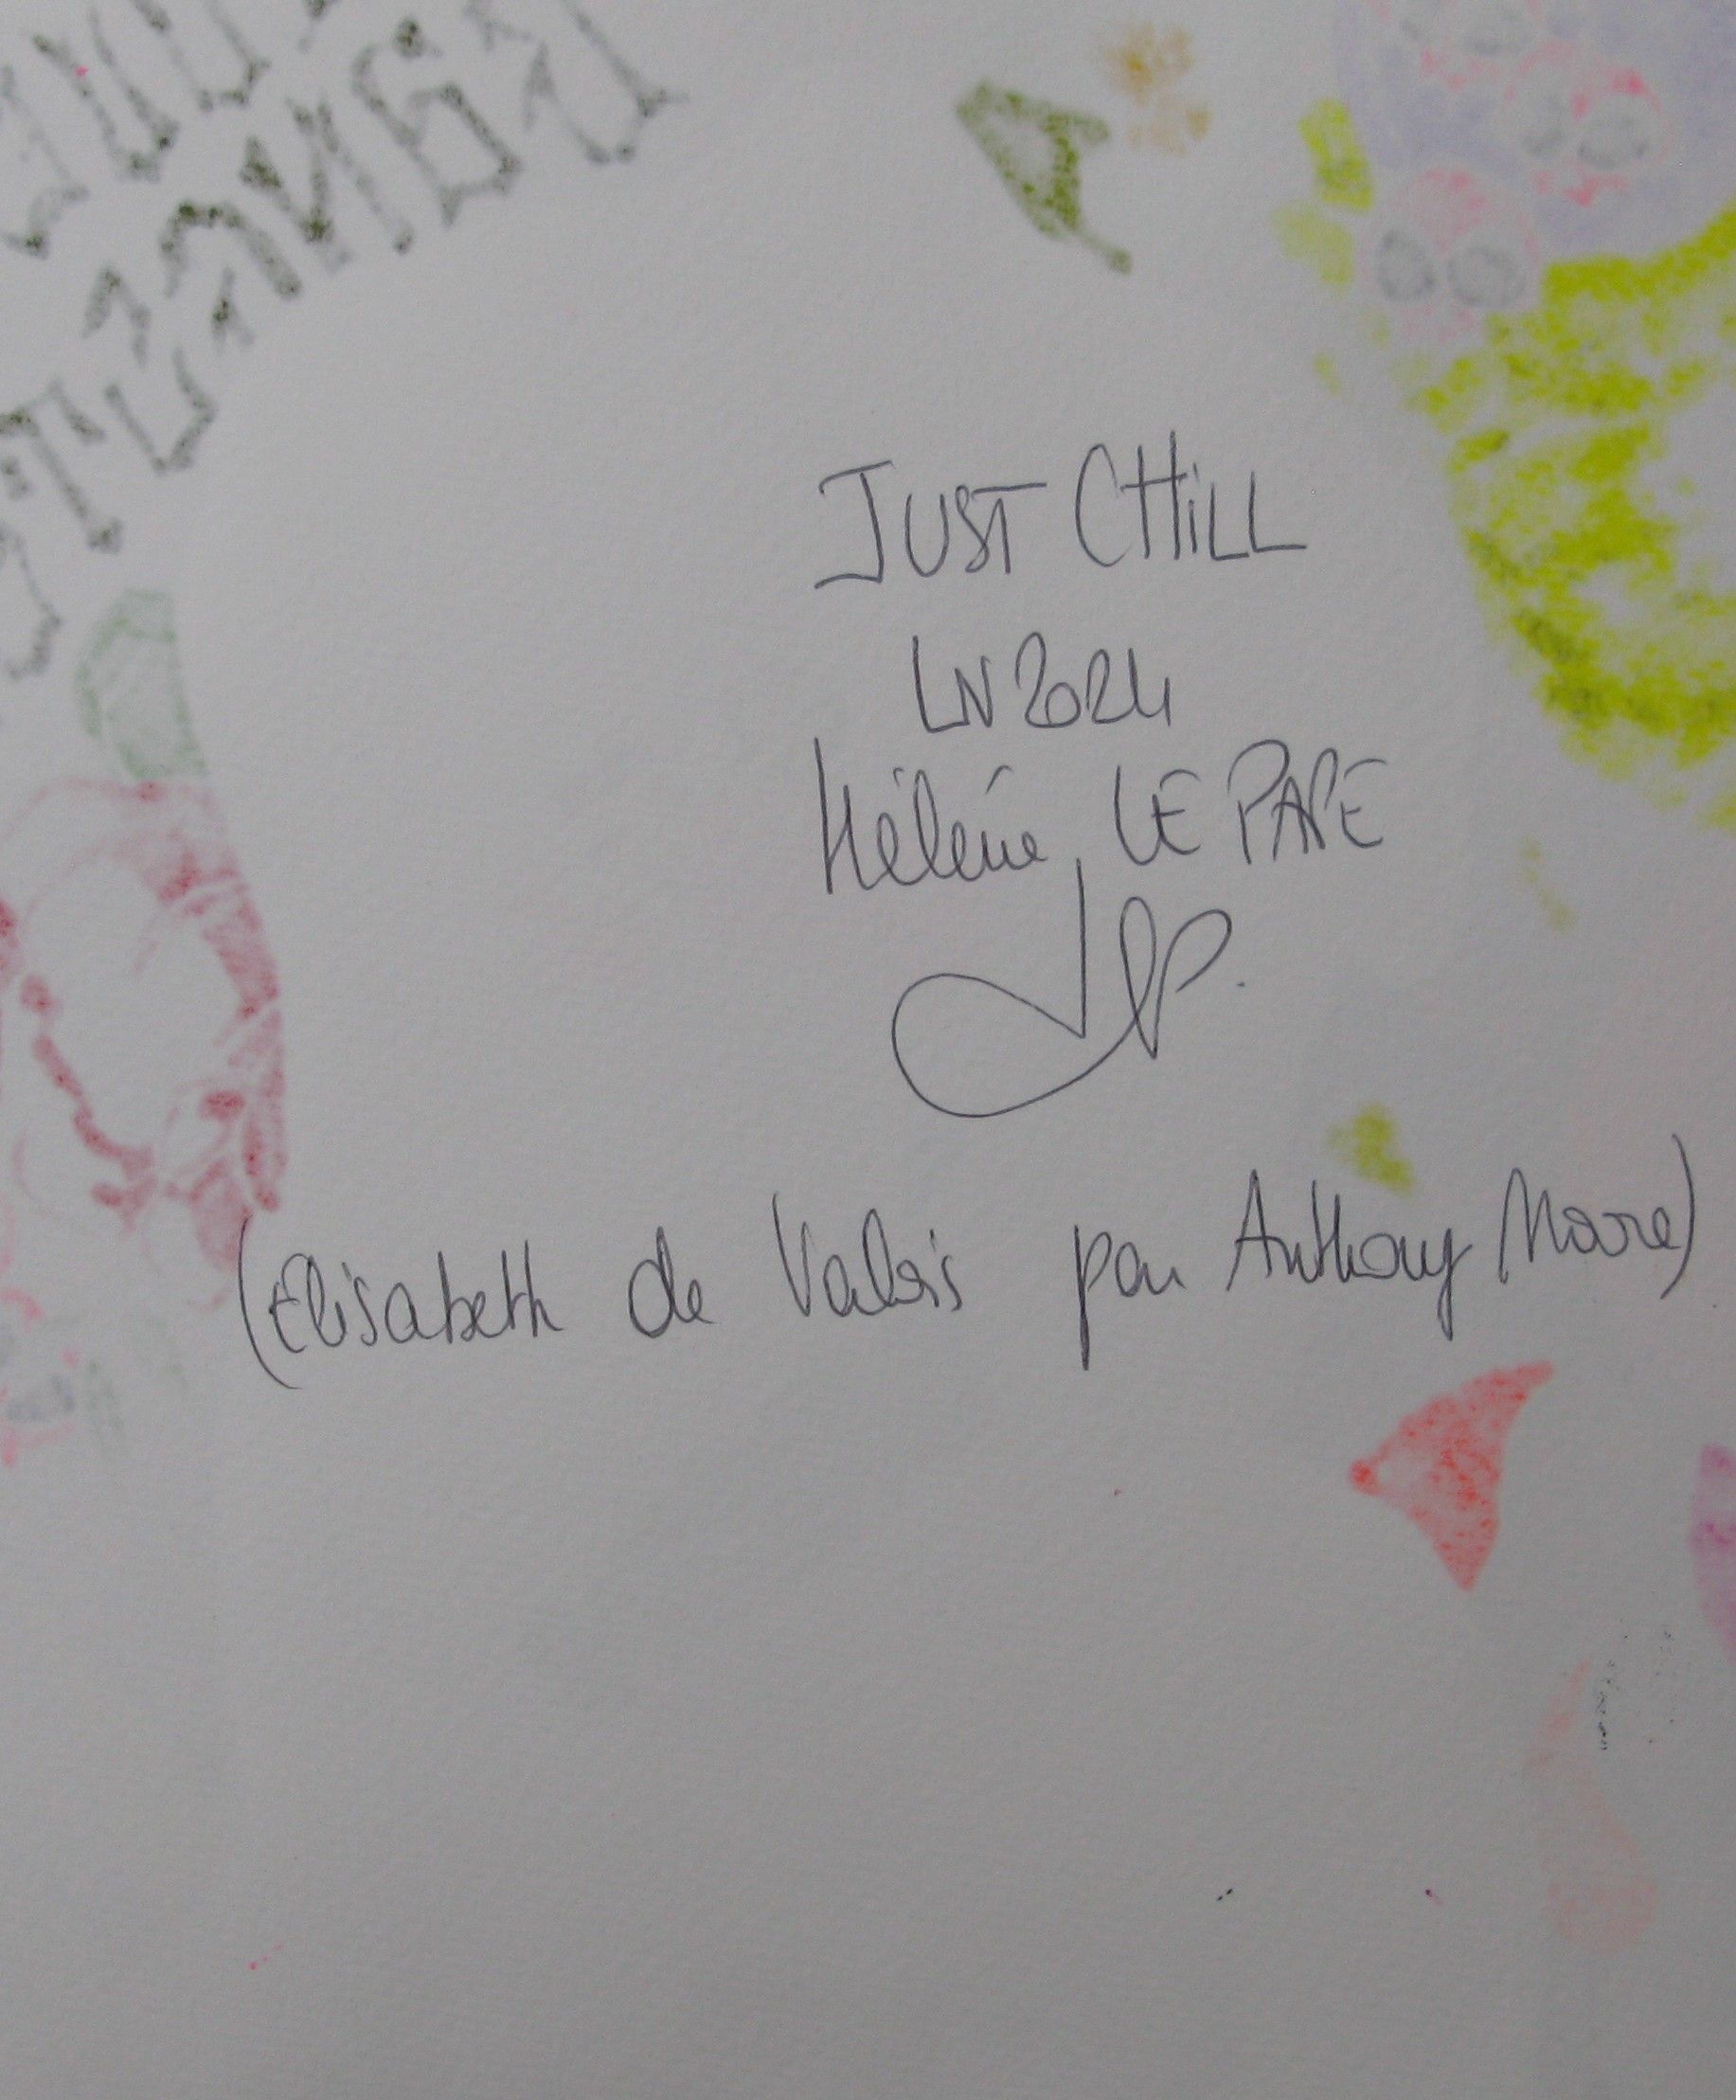 JUST CHiLL
LN 2024
Hélène LE PAPE
(Elisabeth de Valois par Anthony Moore)